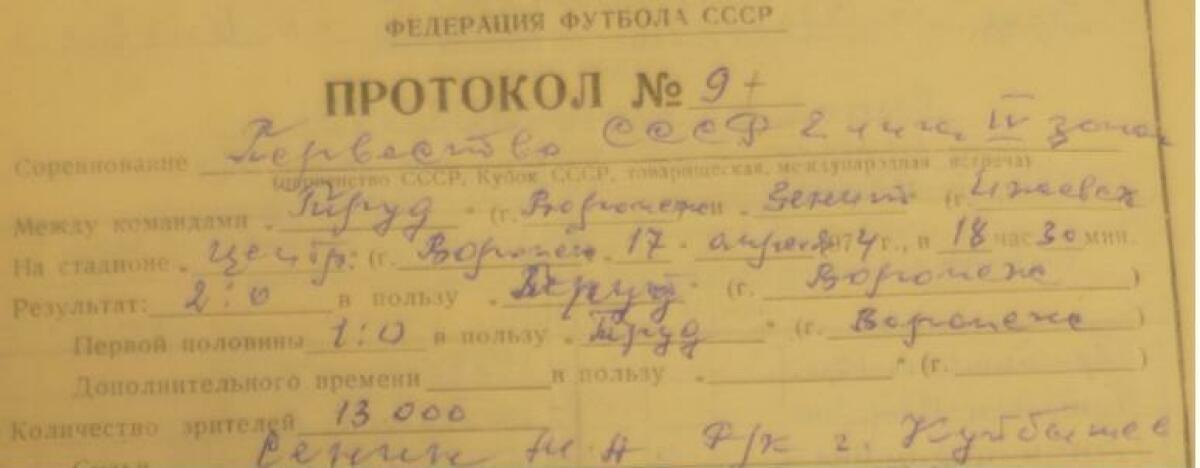 ФЕДЕРАЦИЯ ФУТБОЛА СССР
ПРОТОКОЛ № 9+
Соревнование Первенство СССР 2 лига IV зона
(первенство СССР, Кубок СССР, товарищеская, международная встреча)
Между командами „Труд" (г. Воронеж и „Зенит" (г. Ижевск
На стадионе „Центр. (г. Воронеж 17 апреля 1974 г., в 18 час 30 мин.
Результат: 2:0 в пользу „Труд" (г. Воронеж)
Первой половины 1:0 в пользу „Труд" (г. Воронеж)
Дополнительного времени в пользу „ " (г. )
Количество зрителей 13 000
Сенин Р/к г. Куйбышев